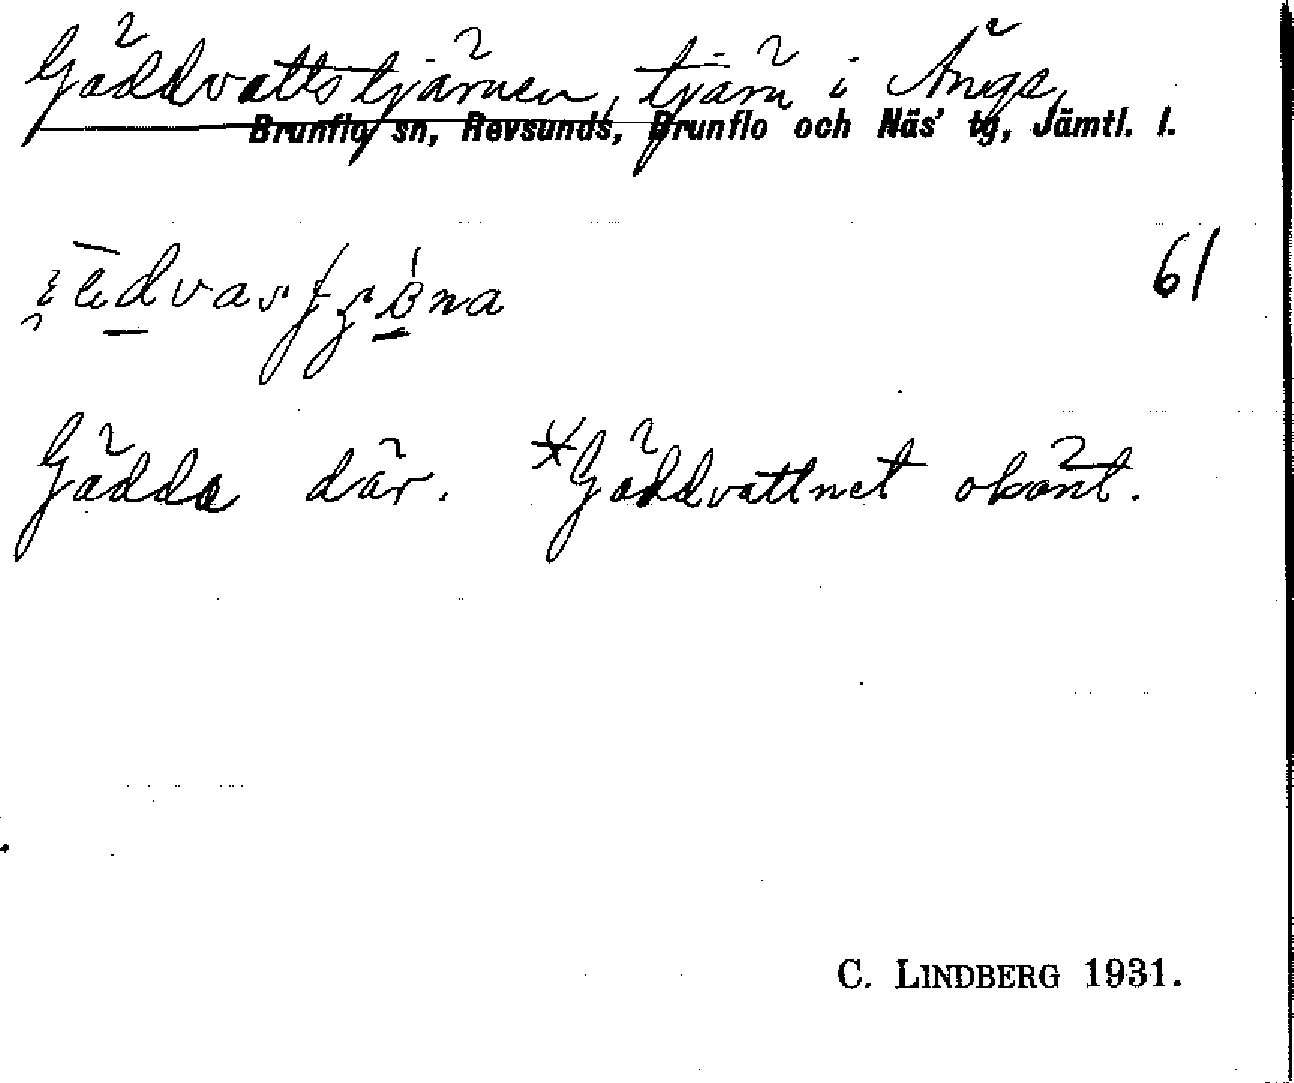 Gäddvattstjärnen, tjärn i Ånge,
Brunflo sn, Revsunds, Brunflo och Näs' tg, Jämtl. l.
61
Gädda där. *Gäddvattnet okänt.
C. LINDBERG 1931.